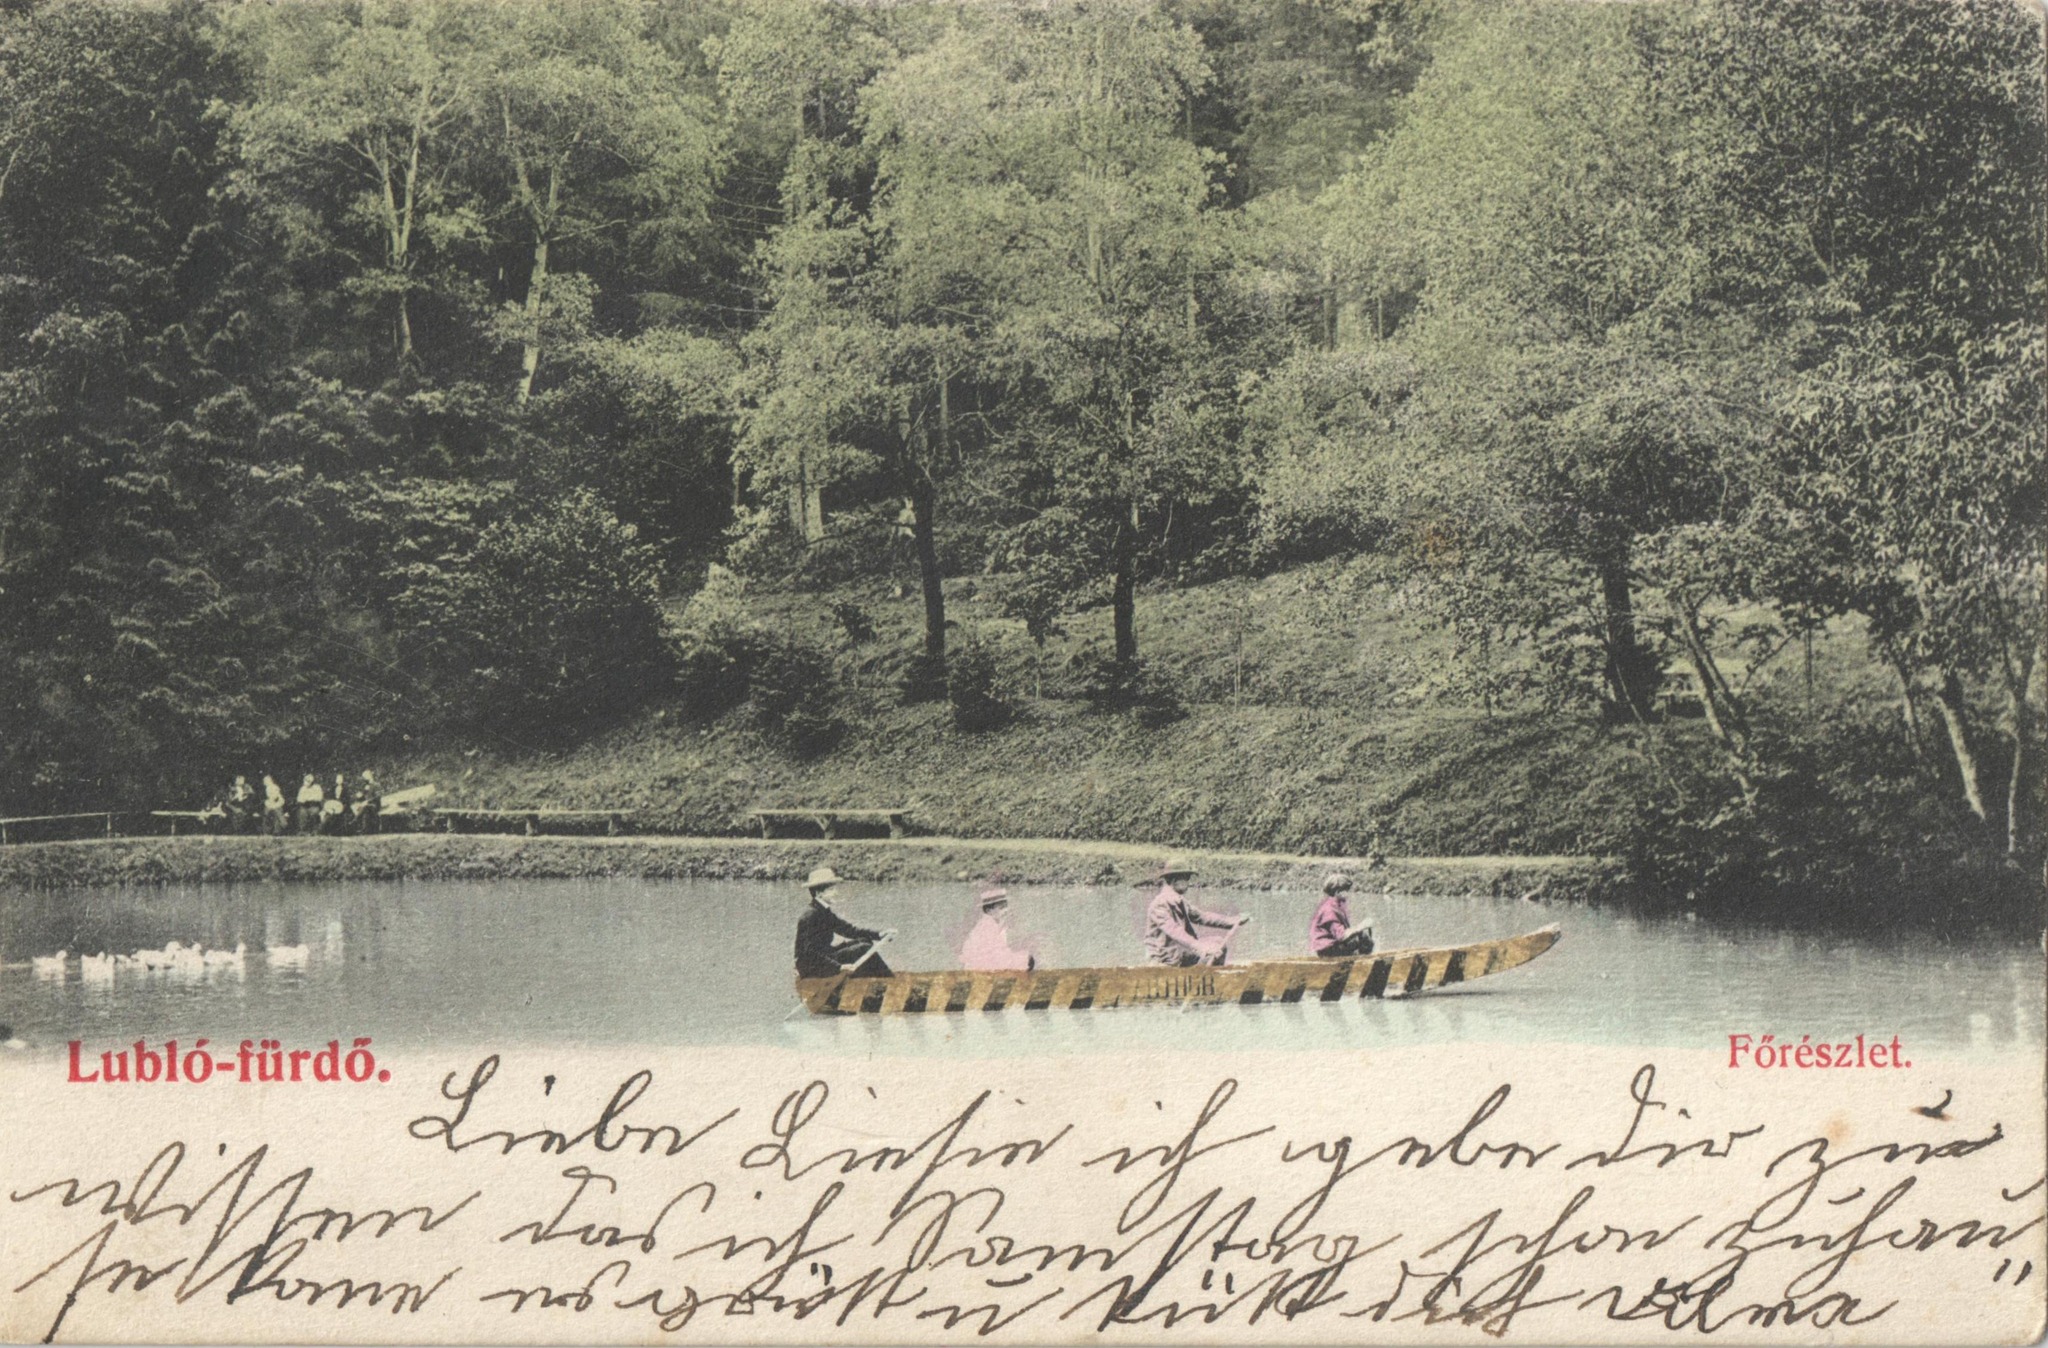 Lubló-fürdő.
Főrészlet.
Liebe Liesie ich gebe dir zu
wissen das ich Samstag schon zuhau„
se kome es grüst u küst dich Vilma